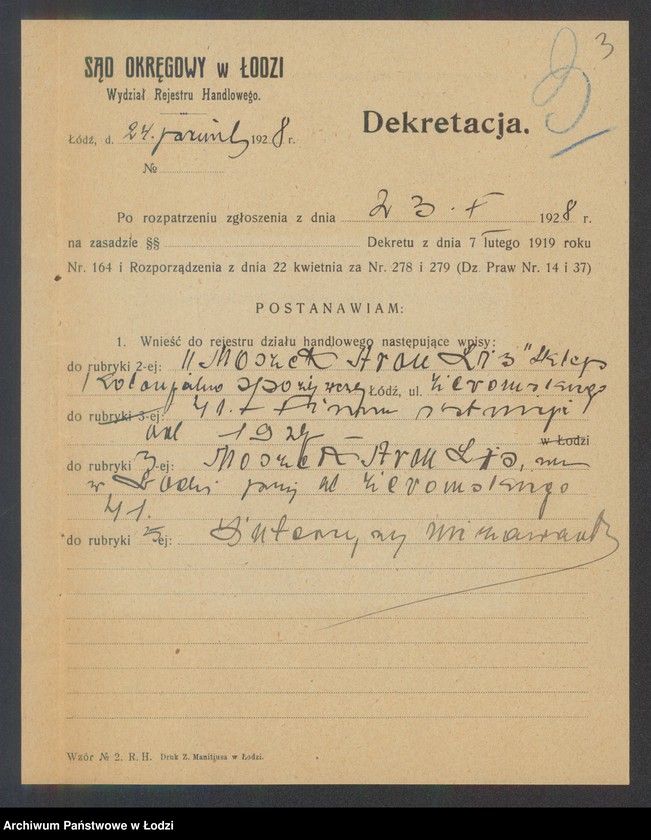 3
SĄD OKRĘGOWY w ŁODZI
Wydział Rejestru Handlowego.
Dekretacja.
Łódź, d. 24. paźdz 1928 r.
№
Po rozpatrzeniu zgłoszenia z dnia 23. X 1928 r.
na zasadzie §§ Dekretu z dnia 7 lutego 1919 roku
Nr. 164 i Rozporządzenia z dnia 22 kwietnia za Nr. 278 i 279 (Dz. Praw Nr. 14 i 37)
POSTANAWIAM:
1. Wnieść do rejestru działu handlowego następujące wpisy:
do rubryki 2-ej: "Moszek Aron Lis" Sklep
kolonjalno spożywczy Łódź, ul. Żeromskiego
do rubryki 3-ej: 41. Firma istnieje
od 192 w Łodzi
do rubryki 3-ej: Moszek Aron Lis, zam
w Łodzi przy ul Żeromskiego
41.
do rubryki ej: Intercyzy nie zawarł
Wzór № 2. R. H. Druk Z. Manitjusa w Łodzi.
Archiwum Państwowe w Łodzi